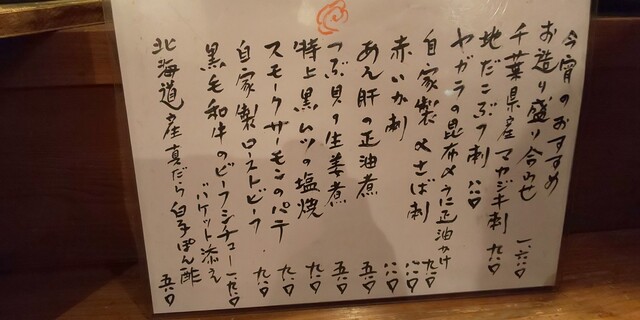 今宵のおすすめ
お造り盛り合わせ 一、六〇〇
千葉県産マカジキ刺 九八〇
地だこぶつ刺 八八〇
ヤガラの昆布〆うに正油かけ 九八〇
自家製〆さば刺 八八〇
赤いか刺 八八〇
あん肝の正油煮 五八〇
つぶ貝の生姜煮 五八〇
特上黒ムツの塩焼 九八〇
スモークサーモンのパテ 九八〇
自家製ローストビーフ 九八〇
黒毛和牛のビーフシチュー 一、九八〇
バケット添え
北海道産真だら白子ぽん酢 五八〇